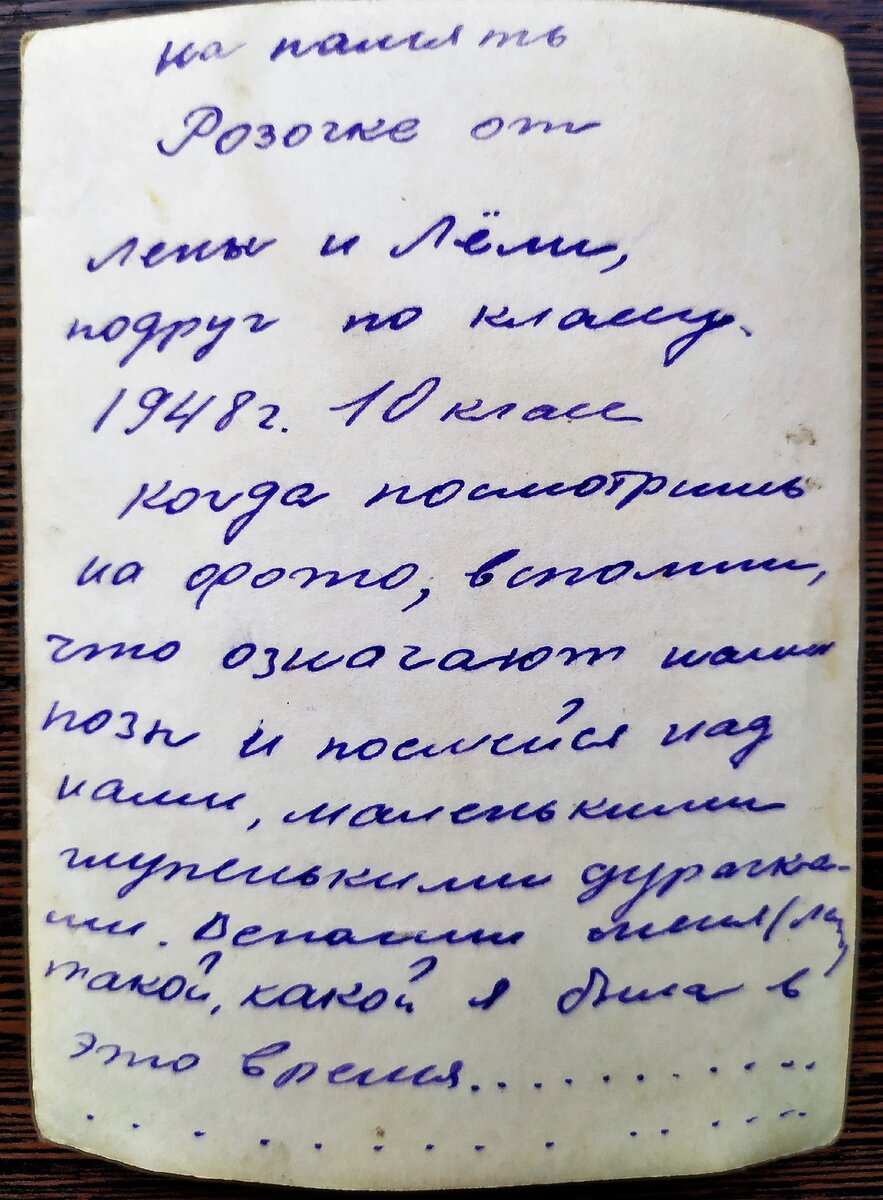 на память
Розочке от
Лены и Лёли,
подруг по классу.
1948г. 10 класс
Когда посмотришь
на фото, вспомни,
что означают наши
позы и посмейся над
нами, маленькими
глупенькими дурачка-
ми. Вспомни меня
такой, какой я была в
это время...........
. . . . . . . . . . . .